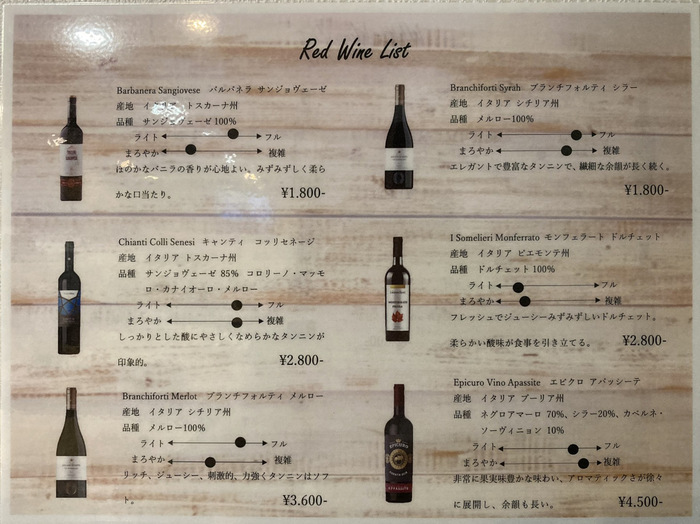 Red Wine List
Barbanera Sangiovese バルバネラ サンジョヴェーゼ
産地 イタリア トスカーナ州
品種 サンジョヴェーゼ 100%
ライト フル
まろやか 複雑
ほのかなバニラの香りが心地よい、みずみずしく柔ら
かな口当たり。
¥1.800-
Chianti Colli Senesi キャンティ コッリセネージ
産地 イタリア トスカーナ州
品種 サンジョヴェーゼ 85% コロリーノ・マッモ
ロ・カナイオーロ・メルロー
ライト フル
まろやか 複雑
しっかりとした酸にやさしくなめらかなタンニンが
印象的。
¥2.800-
Branchiforti Merlot ブランチフォルティ メルロー
産地 イタリア シチリア州
品種 メルロー100%
ライト フル
まろやか 複雑
リッチ、ジューシー、刺激的、力強くタンニンはソフ
ト。
¥3.600-
Branchiforti Syrah ブランチフォルティ シラー
産地 イタリア シチリア州
品種 メルロー100%
ライト フル
まろやか 複雑
エレガントで豊富なタンニンで、繊細な余韻が長く続く。
¥1.800-
I Somelieri Monferrato モンフェラート ドルチェット
産地 イタリア ピエモンテ州
品種 ドルチェット 100%
ライト フル
まろやか 複雑
フレッシュでジューシーみずみずしいドルチェット。
柔らかい酸味が食事を引き立てる。
¥2.800-
Epicuro Vino Apassite エピクロ アパッシーテ
産地 イタリア プーリア州
品種 ネグロアマーロ 70%、シラー20%、カベルネ・
ソーヴィニョン 10%
ライト フル
まろやか 複雑
非常に果実味豊かな味わい、アロマティックさが徐々
に展開し、余韻も長い。
¥4.500-
EPICURO